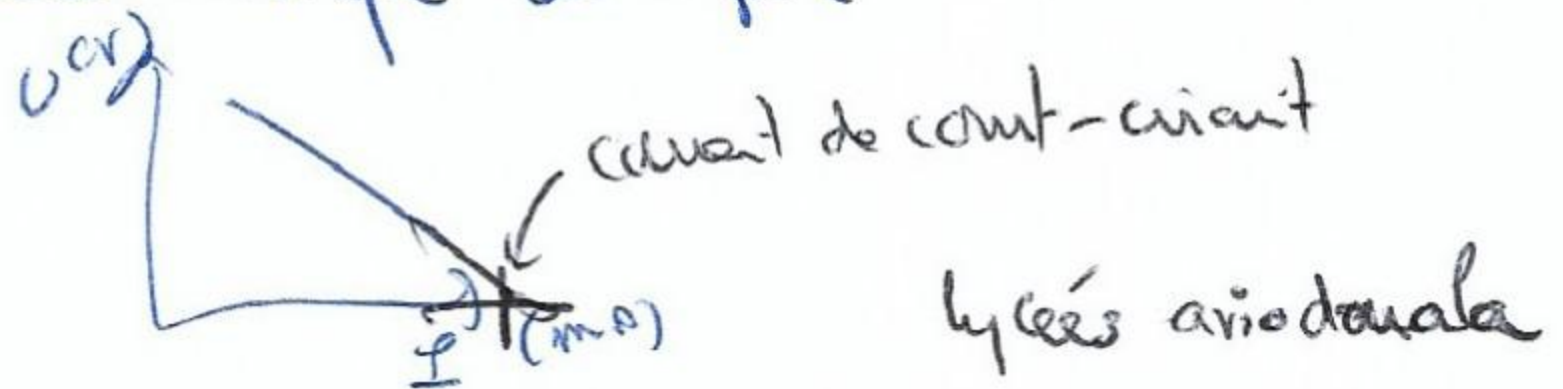 U(V)
courant de court-circuit
I (mA)
lycées aviodouala